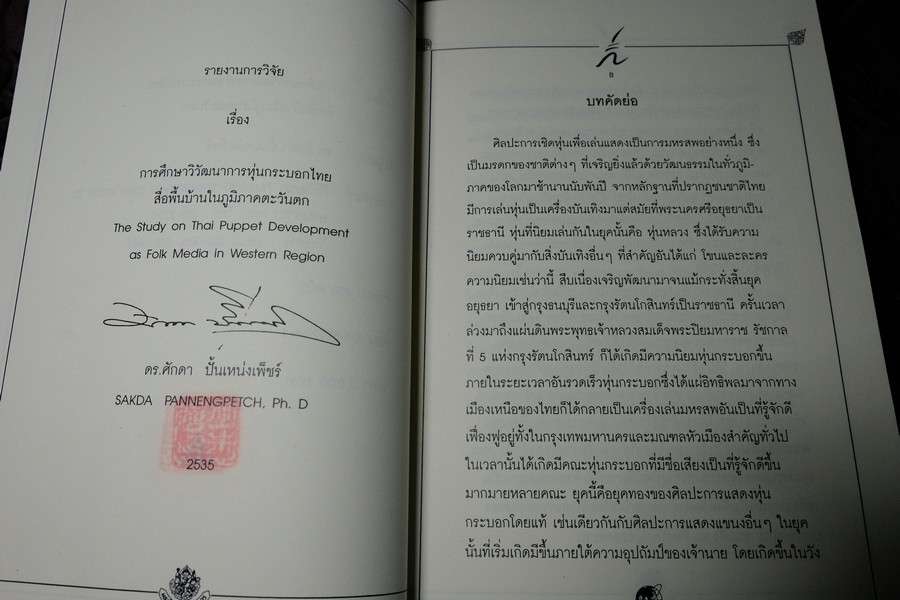 รายงานการวิจัย
เรื่อง
การศึกษาวิวัฒนาการหุ่นกระบอกไทย
สื่อพื้นบ้านในภูมิภาคตะวันตก
The Study on Thai Puppet Development
as Folk Media in Western Region
ดร.ศักดา ปั้นเหน่งเพ็ชร์
SAKDA PANNENGPETCH, Ph. D
2535
บทคัดย่อ
ศิลปะการเชิดหุ่นเพื่อเล่นแสดงเป็นการมหรสพอย่างหนึ่ง ซึ่ง
เป็นมรดกของชาติต่างๆ ที่เจริญยิ่งแล้วด้วยวัฒนธรรมในทั่วภูมิ-
ภาคของโลกมาช้านานนับพันปี จากหลักฐานที่ปรากฏชนชาติไทย
มีการเล่นหุ่นเป็นเครื่องบันเทิงมาแต่สมัยที่พระนครศรีอยุธยาเป็น
ราชธานี หุ่นที่นิยมเล่นกันในยุคนั้นคือ หุ่นหลวง ซึ่งได้รับความ
นิยมควบคู่มากับสิ่งบันเทิงอื่นๆ ที่สำคัญอันได้แก่ โขนและละคร
ความนิยมเช่นว่านี้ สืบเนื่องเจริญพัฒนามาจนแม้กระทั่งสิ้นยุค
อยุธยา เข้าสู่กรุงธนบุรีและกรุงรัตนโกสินทร์เป็นราชธานี ครั้นเวลา
ล่วงมาถึงแผ่นดินพระพุทธเจ้าหลวงสมเด็จพระปิยมหาราช รัชกาล
ที่ 5 แห่งกรุงรัตนโกสินทร์ ก็ได้เกิดมีความนิยมหุ่นกระบอกขึ้น
ภายในระยะเวลาอันรวดเร็วหุ่นกระบอกซึ่งได้แผ่อิทธิพลมาจากทาง
เมืองเหนือของไทยก็ได้กลายเป็นเครื่องเล่นมหรสพอันเป็นที่รู้จักดี
เฟื่องฟูอยู่ทั้งในกรุงเทพมหานครและมณฑลหัวเมืองสำคัญทั่วไป
ในเวลานั้นได้เกิดมีคณะหุ่นกระบอกที่มีชื่อเสียงเป็นที่รู้จักดีขึ้น
มากมายหลายคณะ ยุคนี้คือยุคทองของศิลปะการแสดงหุ่น
กระบอกโดยแท้ เช่นเดียวกันกับศิลปะการแสดงแขนงอื่นๆ ในยุค
นั้นที่เริ่มเกิดมีขึ้นภายใต้ความอุปถัมป์ของเจ้านาย โดยเกิดขึ้นในวัง